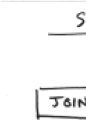 S
JOIN